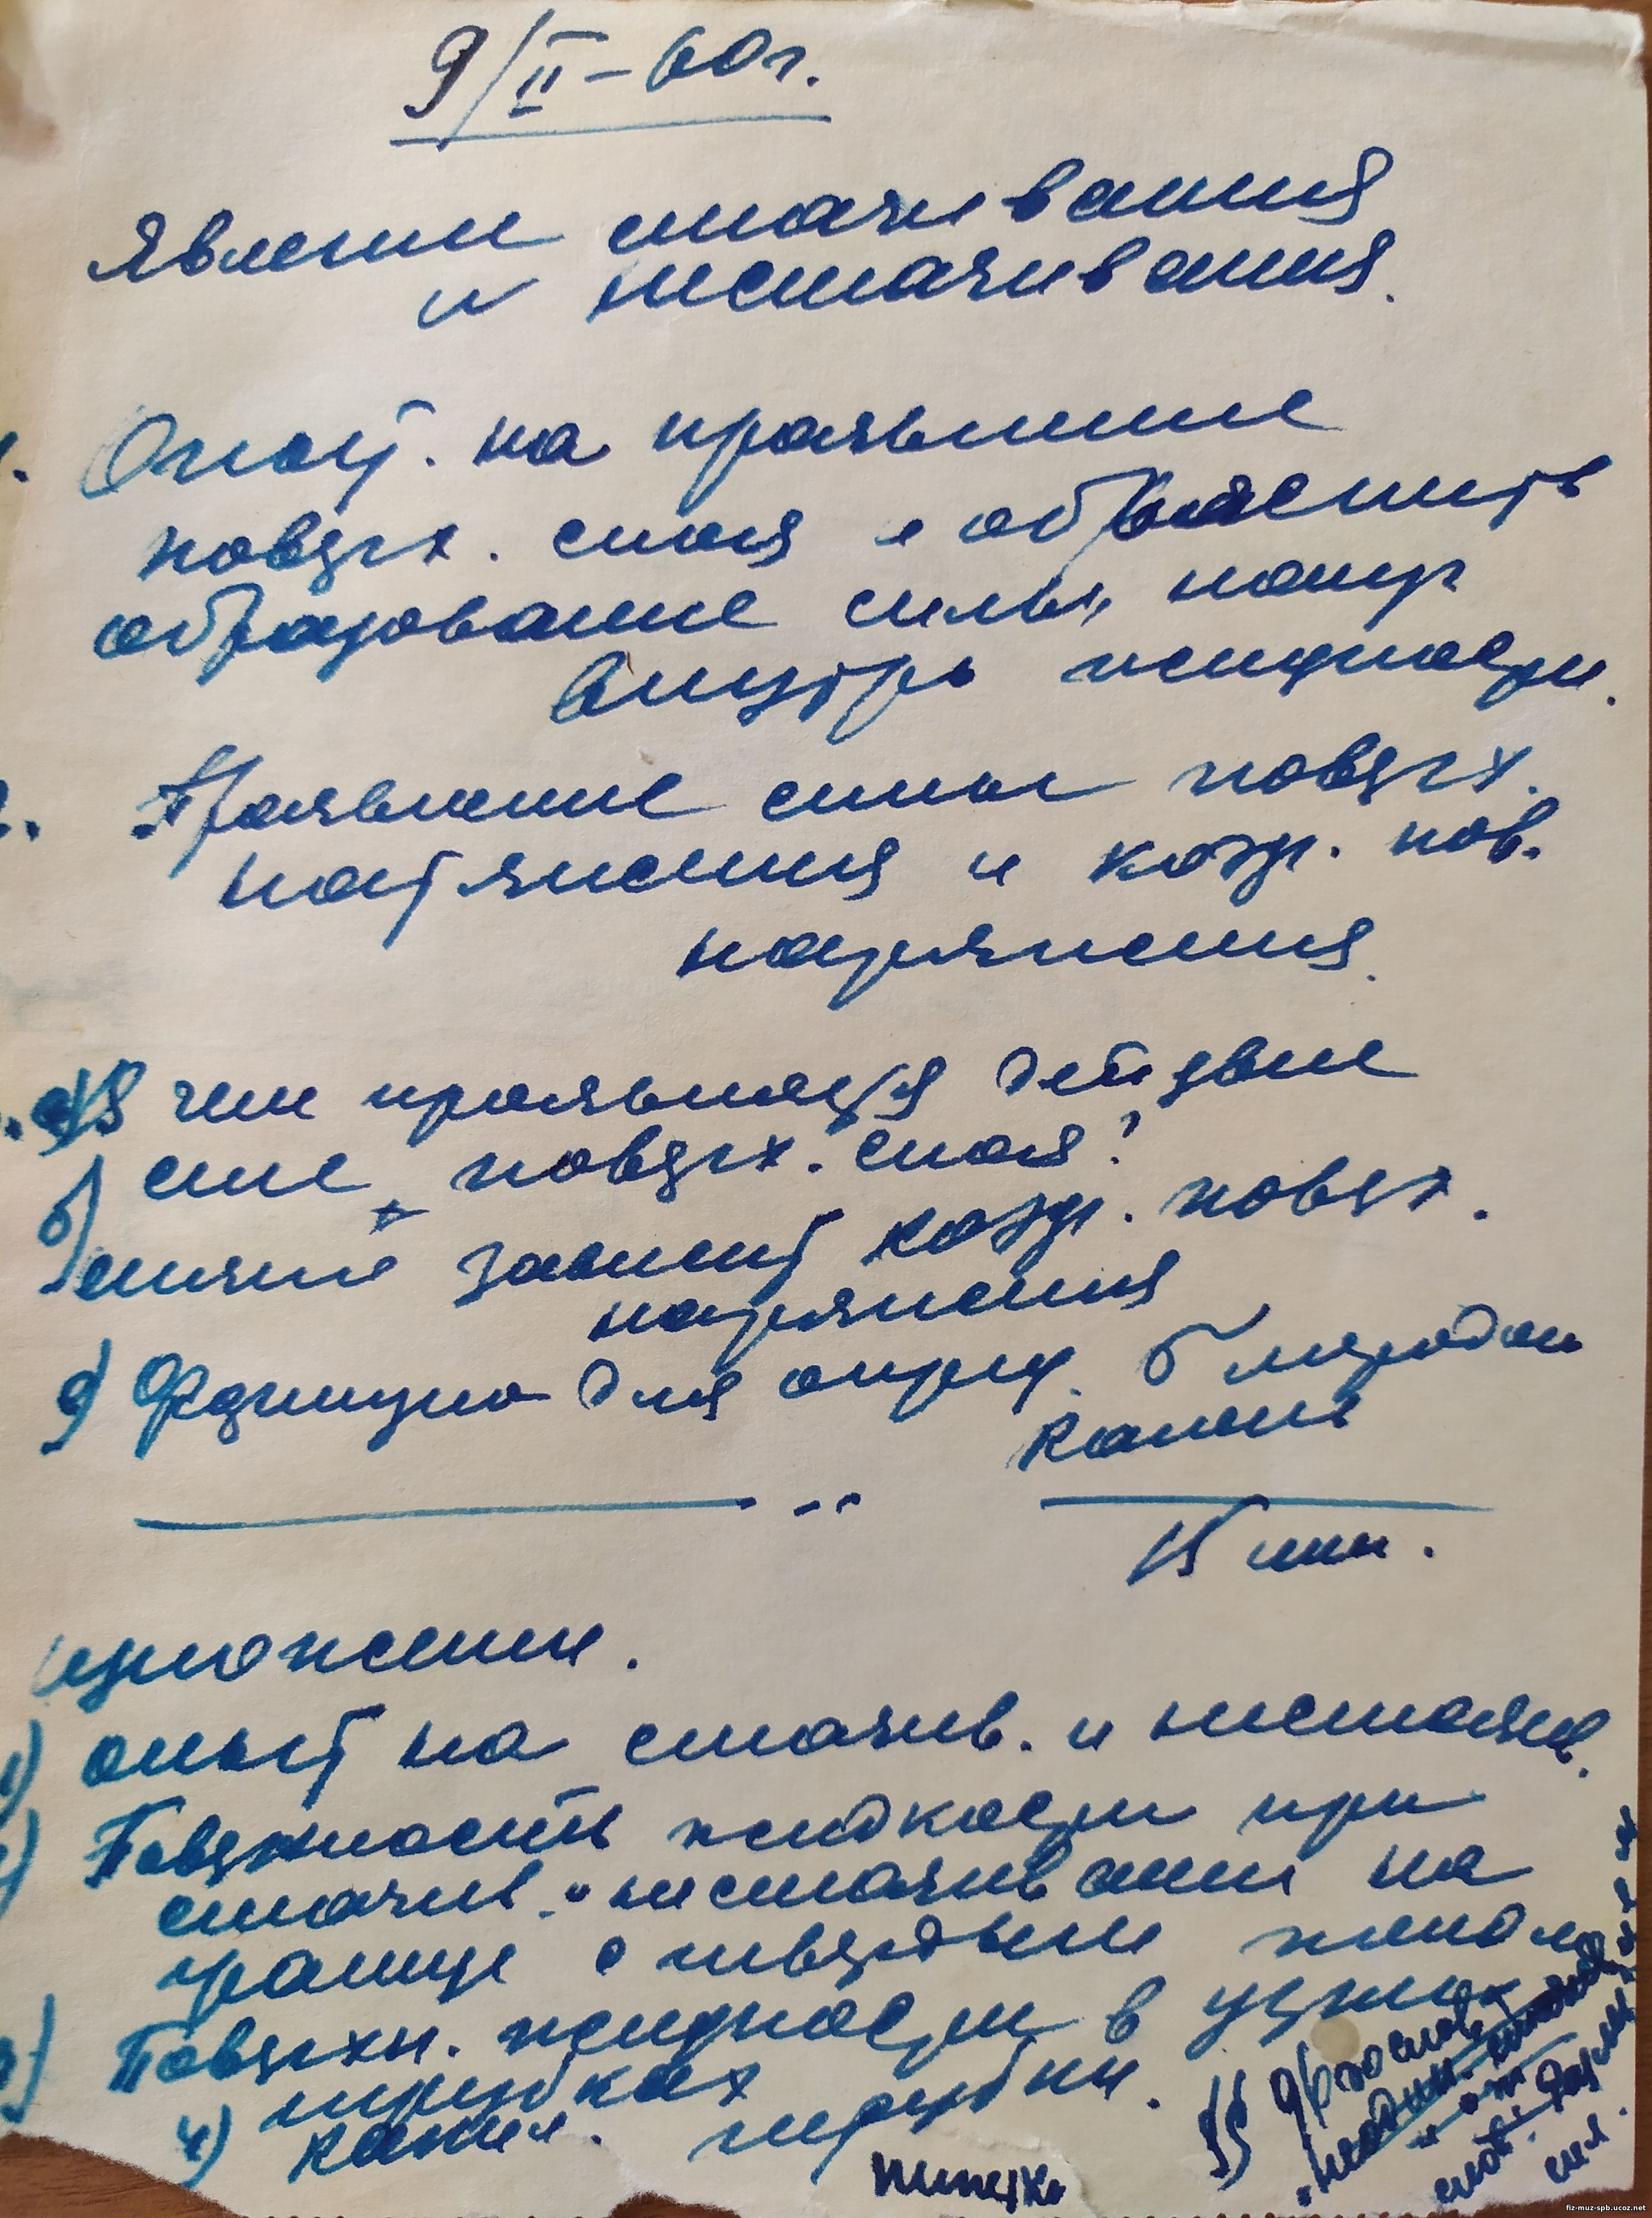 9/II-60г.
Явлени смачивания
и несмачивания.
1. Опыт. на проявление
поверх. слоя и объяснить
образование силы, напр
внутрь жидкости.
2. Проявление силы поверх.
натяжения и коэф. пов.
натяжения.
а) В чем проявляется действие
сил поверх. слоя?
б) зависит коэф. поверх.
натяжения
для опред. б методом
капель
15 мин.
изложении.
1) опыт на смачив. и несмачив.
2) Поверхность жидкости при
смачив. и несмачивании на
границе с твердым
3) Поверхн. жидкости в узких
трубках
4) капил. трубки.
пипетка
§§